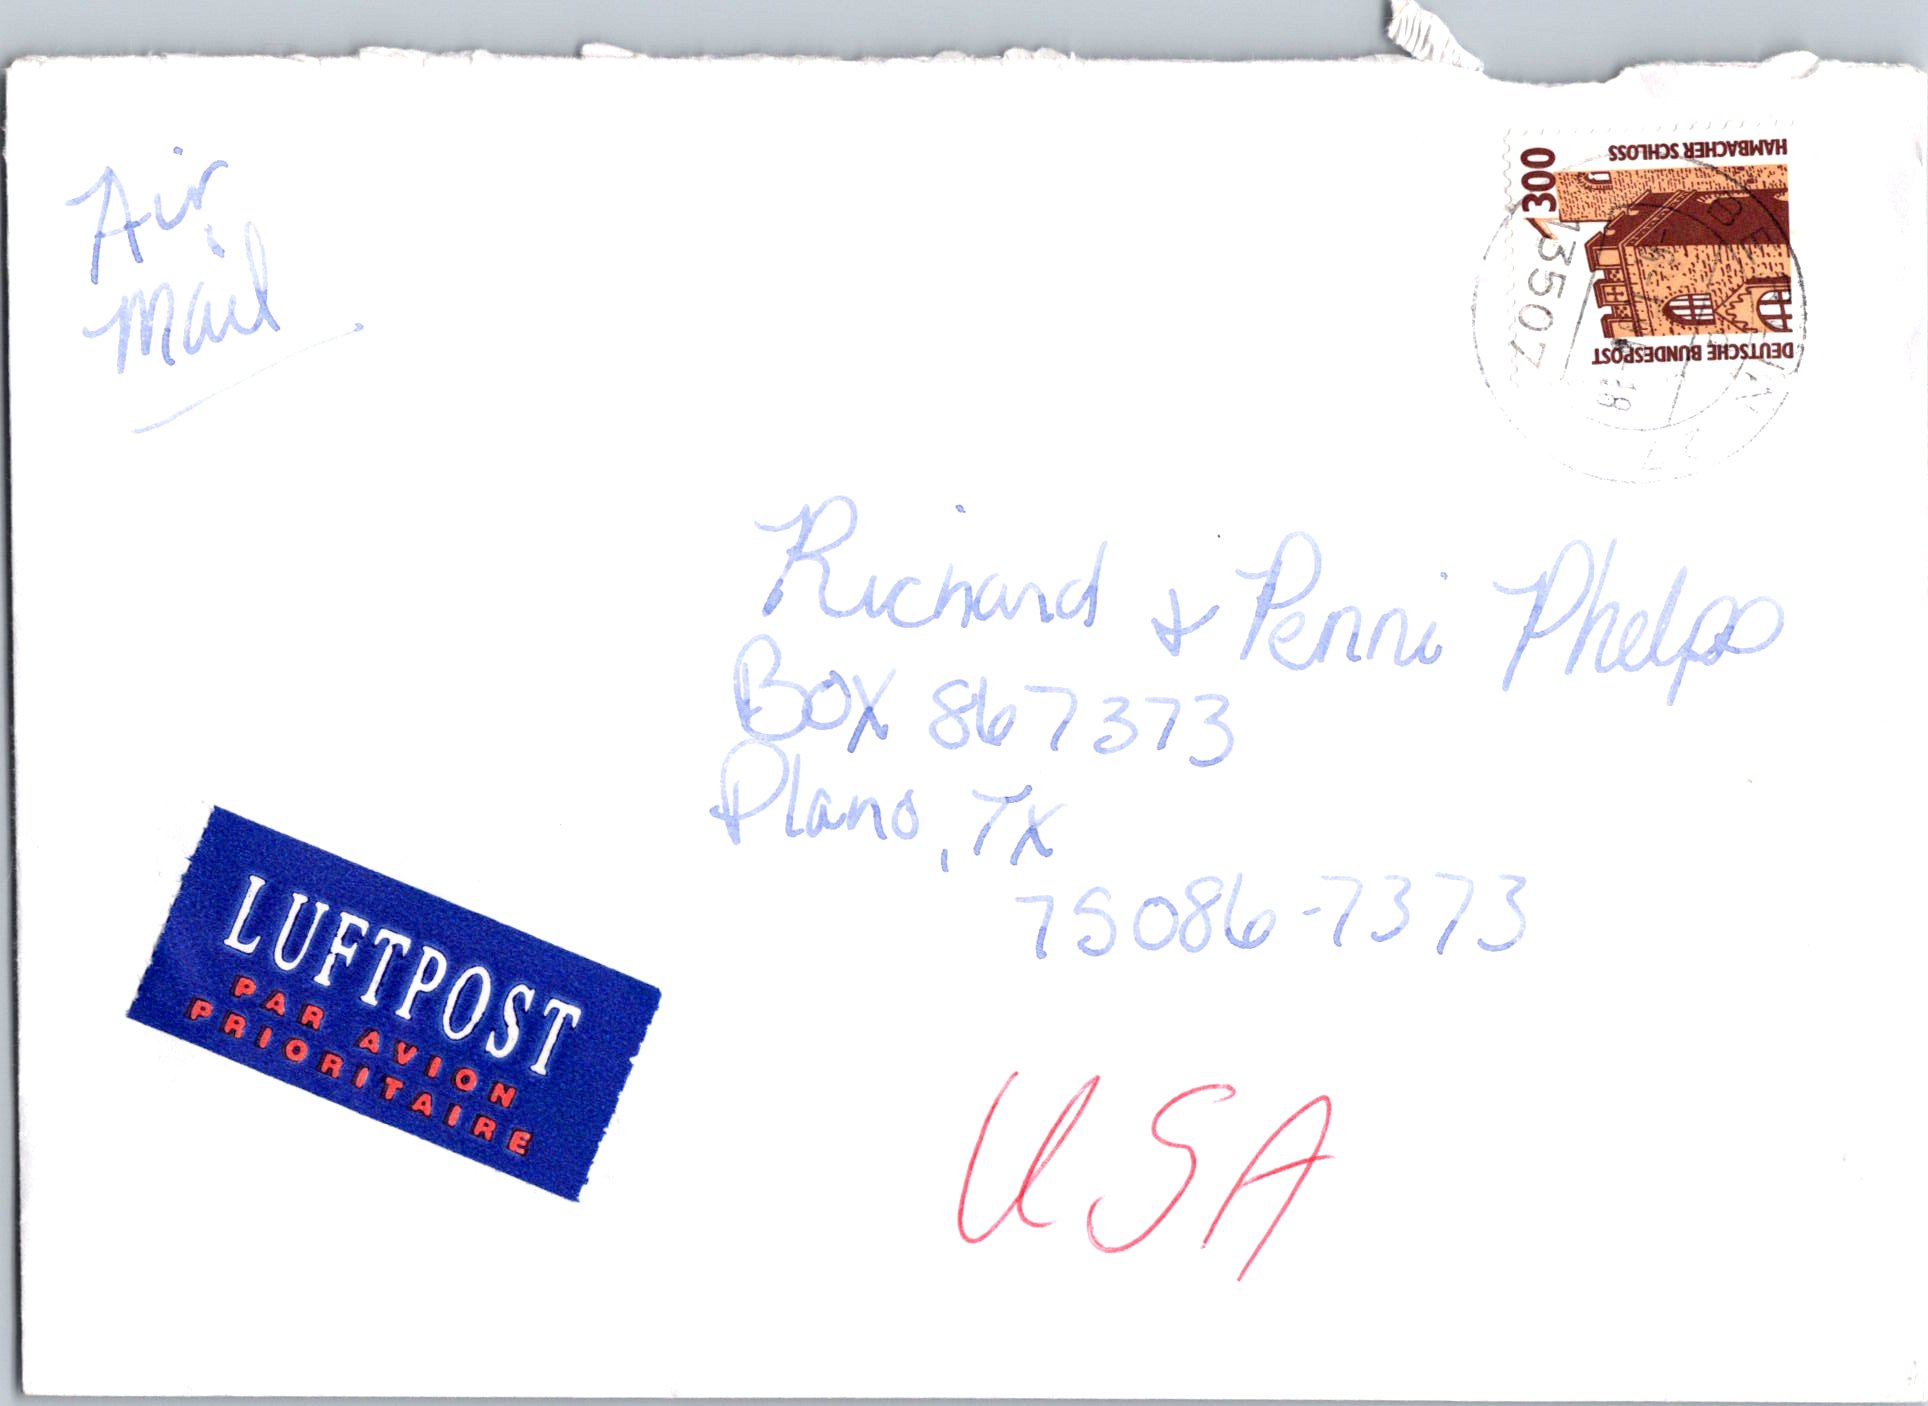 Air
Mail
HAMBACHER SCHLOSS
300
DEUTSCHE BUNDESPOST
13507
Richard & Penni Phelps
Box 867373
Plano, TX
75086-7373
LUFTPOST
PAR AVION
PRIORITAIRE
USA